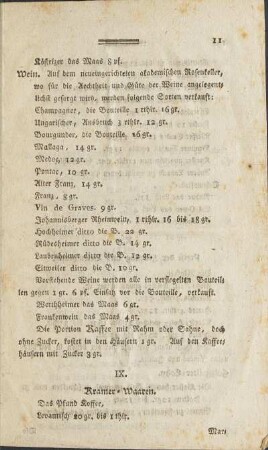 11
Köstritzer das Maas 8 pf.
Wein. Auf dem neueingerichteten akademischen Rosenkeller,
wo für die Aechtheit und Güte der Weine angelegent
lichst gesorgt wird, werden folgende Sorten verkauft:
Champagner, die Bouteille 1 rthlr. 16 gr.
Ungarischer, Ausbruch 3 rthlr. 12 gr.
Bourgunder, die Bouteille, 16 gr.
Mallaga, 14 gr.
Medoc, 12 gr.
Pontac, 10 gr.
Alter Franz, 14 gr.
Franz, 8 gr.
Vin de Graves. 9 gr.
Johannisberger Rheinwein, 1 rthlr. 16 bis 18 gr.
Hochheimer ditto die B. 22 gr.
Rüdesheimer ditto die B. 14 gr.
Laubenheimer ditto die B. 12 gr.
Eitweiler ditto die B. 10 gr.
Vorstehende Weine werden alle in versiegelten Bouteil
len gegen 1 gr. 6 pf. Einsatz vor die Bouteille, verkauft.
Wertheimer das Maas 6 gr.
Frankenwein das Maas 4 gr.
Die Portion Kaffee mit Rahm oder Sahne, doch
ohne Zucker, kostet in den Häusern 1 gr. Auf den Kaffee
häusern mit Zucker 3 gr.
IX.
Kramer-Waaren.
Das Pfund Koffee,
Levantisch 20 gr. bis 1 thlr.
Mart